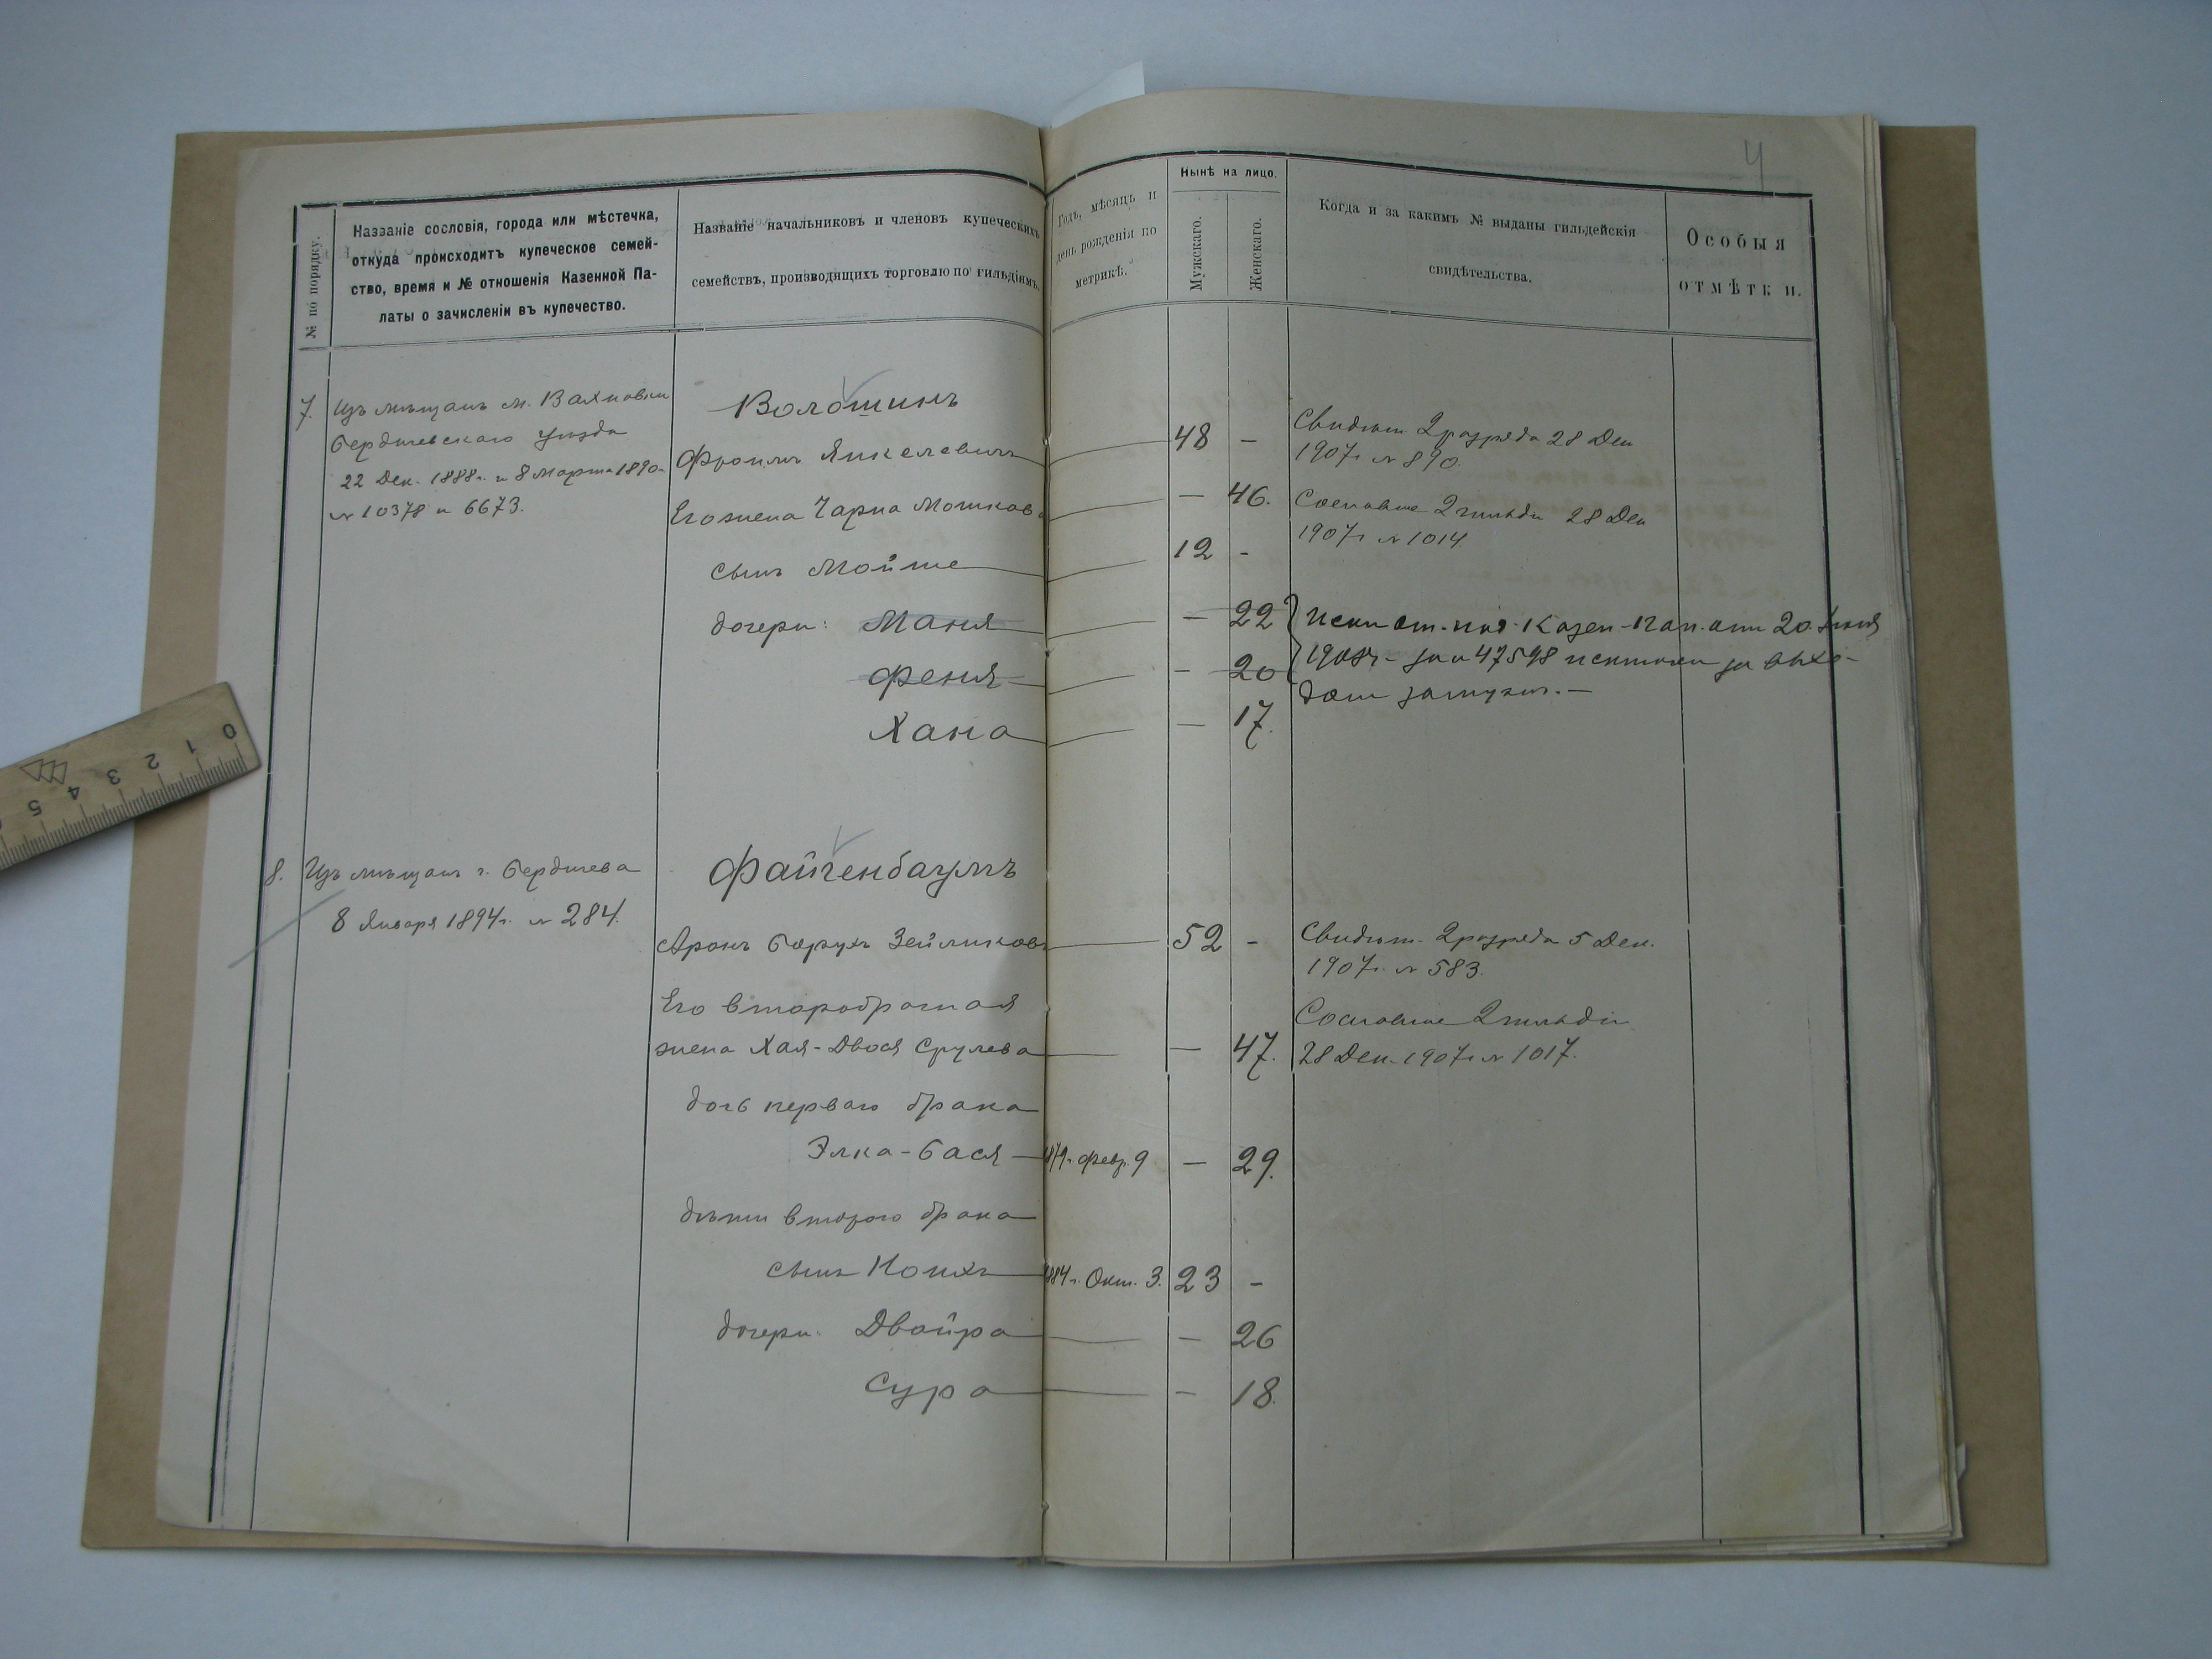 4
№ по порядку.
Названіе сословія, города или мѣстечка,
откуда происходитъ купеческое семей-
ство, время и № отношенія Казенной Па-
латы о зачисленіи въ купечество.
Названіе начальниковъ и членовъ купеческихъ
семействъ, производящихъ торговлю по гильдіямъ.
Годъ, мѣсяцъ и
день рожденія по
метрикѣ.
Нынѣ на лицо.
Мужскаго.
Женскаго.
Когда и за какимъ № выданы гильдейскія
свидѣтельства.
Особыя
отмѣтки.
7.
Изъ мѣщанъ м. Вахновки
Бердичевскаго уѣзда
22 Дек. 1888г. и 8 Марта 1890г.
№ 10378 и 6673.
Волошинъ
Фроимъ Янкелевичъ
48 -
Свидѣт. 2 разряда 28 Дек
1907г. № 890.
Его жена Чарна Мошкова
- 46.
Сословное 2 гильди 28 Дек
1907г. № 1014.
сынъ Мойше
12 -
дочери: Маня
- 22
Феня
- 20
Хана
- 17.
Каз. Пал. отъ 20 Іюня
1908г. за № 47598 за выхо-
домъ замужъ. -
8.
Изъ мѣщанъ г. Бердичева
8 Января 1894г. № 284.
Файгенбаумъ
Аронъ Борухъ Зейликовъ
52 -
Свидѣт. 2 разряда 5 Дек.
1907г. № 583.
Его второбрачная
жена Хая-Двося Срулева
- 47.
Сословное 2 гильдіи
28 Дек. 1907г. № 1017.
дочь перваго брака
Элка-Бася
1879г. Февр. 9
- 29.
дѣти второго брака
сынъ
1884г. Окт. 3.
23 -
дочери: Двойра
- 26
Сура
- 18.
0 1 2 3 4 5